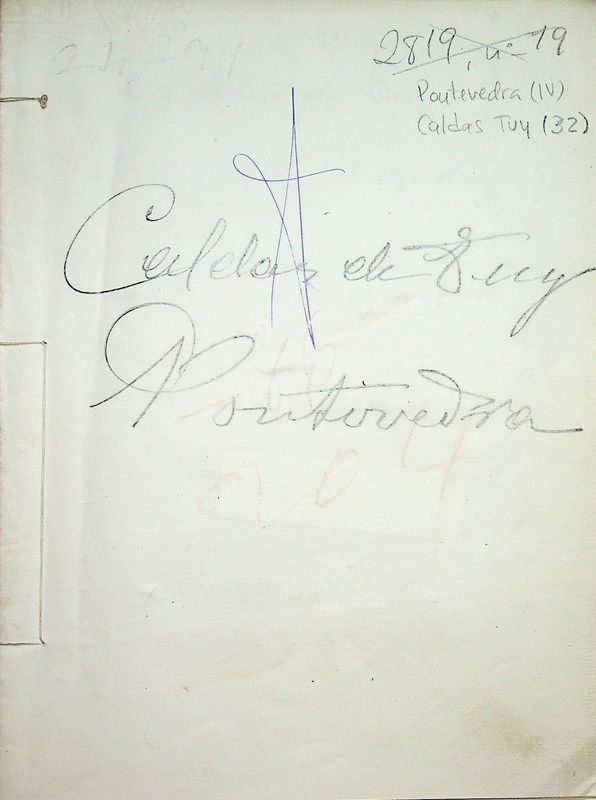 2819, nº 19
Pontevedra (IV)
Caldas Tuy (32)
A
Caldas de Tuy
Pontevedra
204